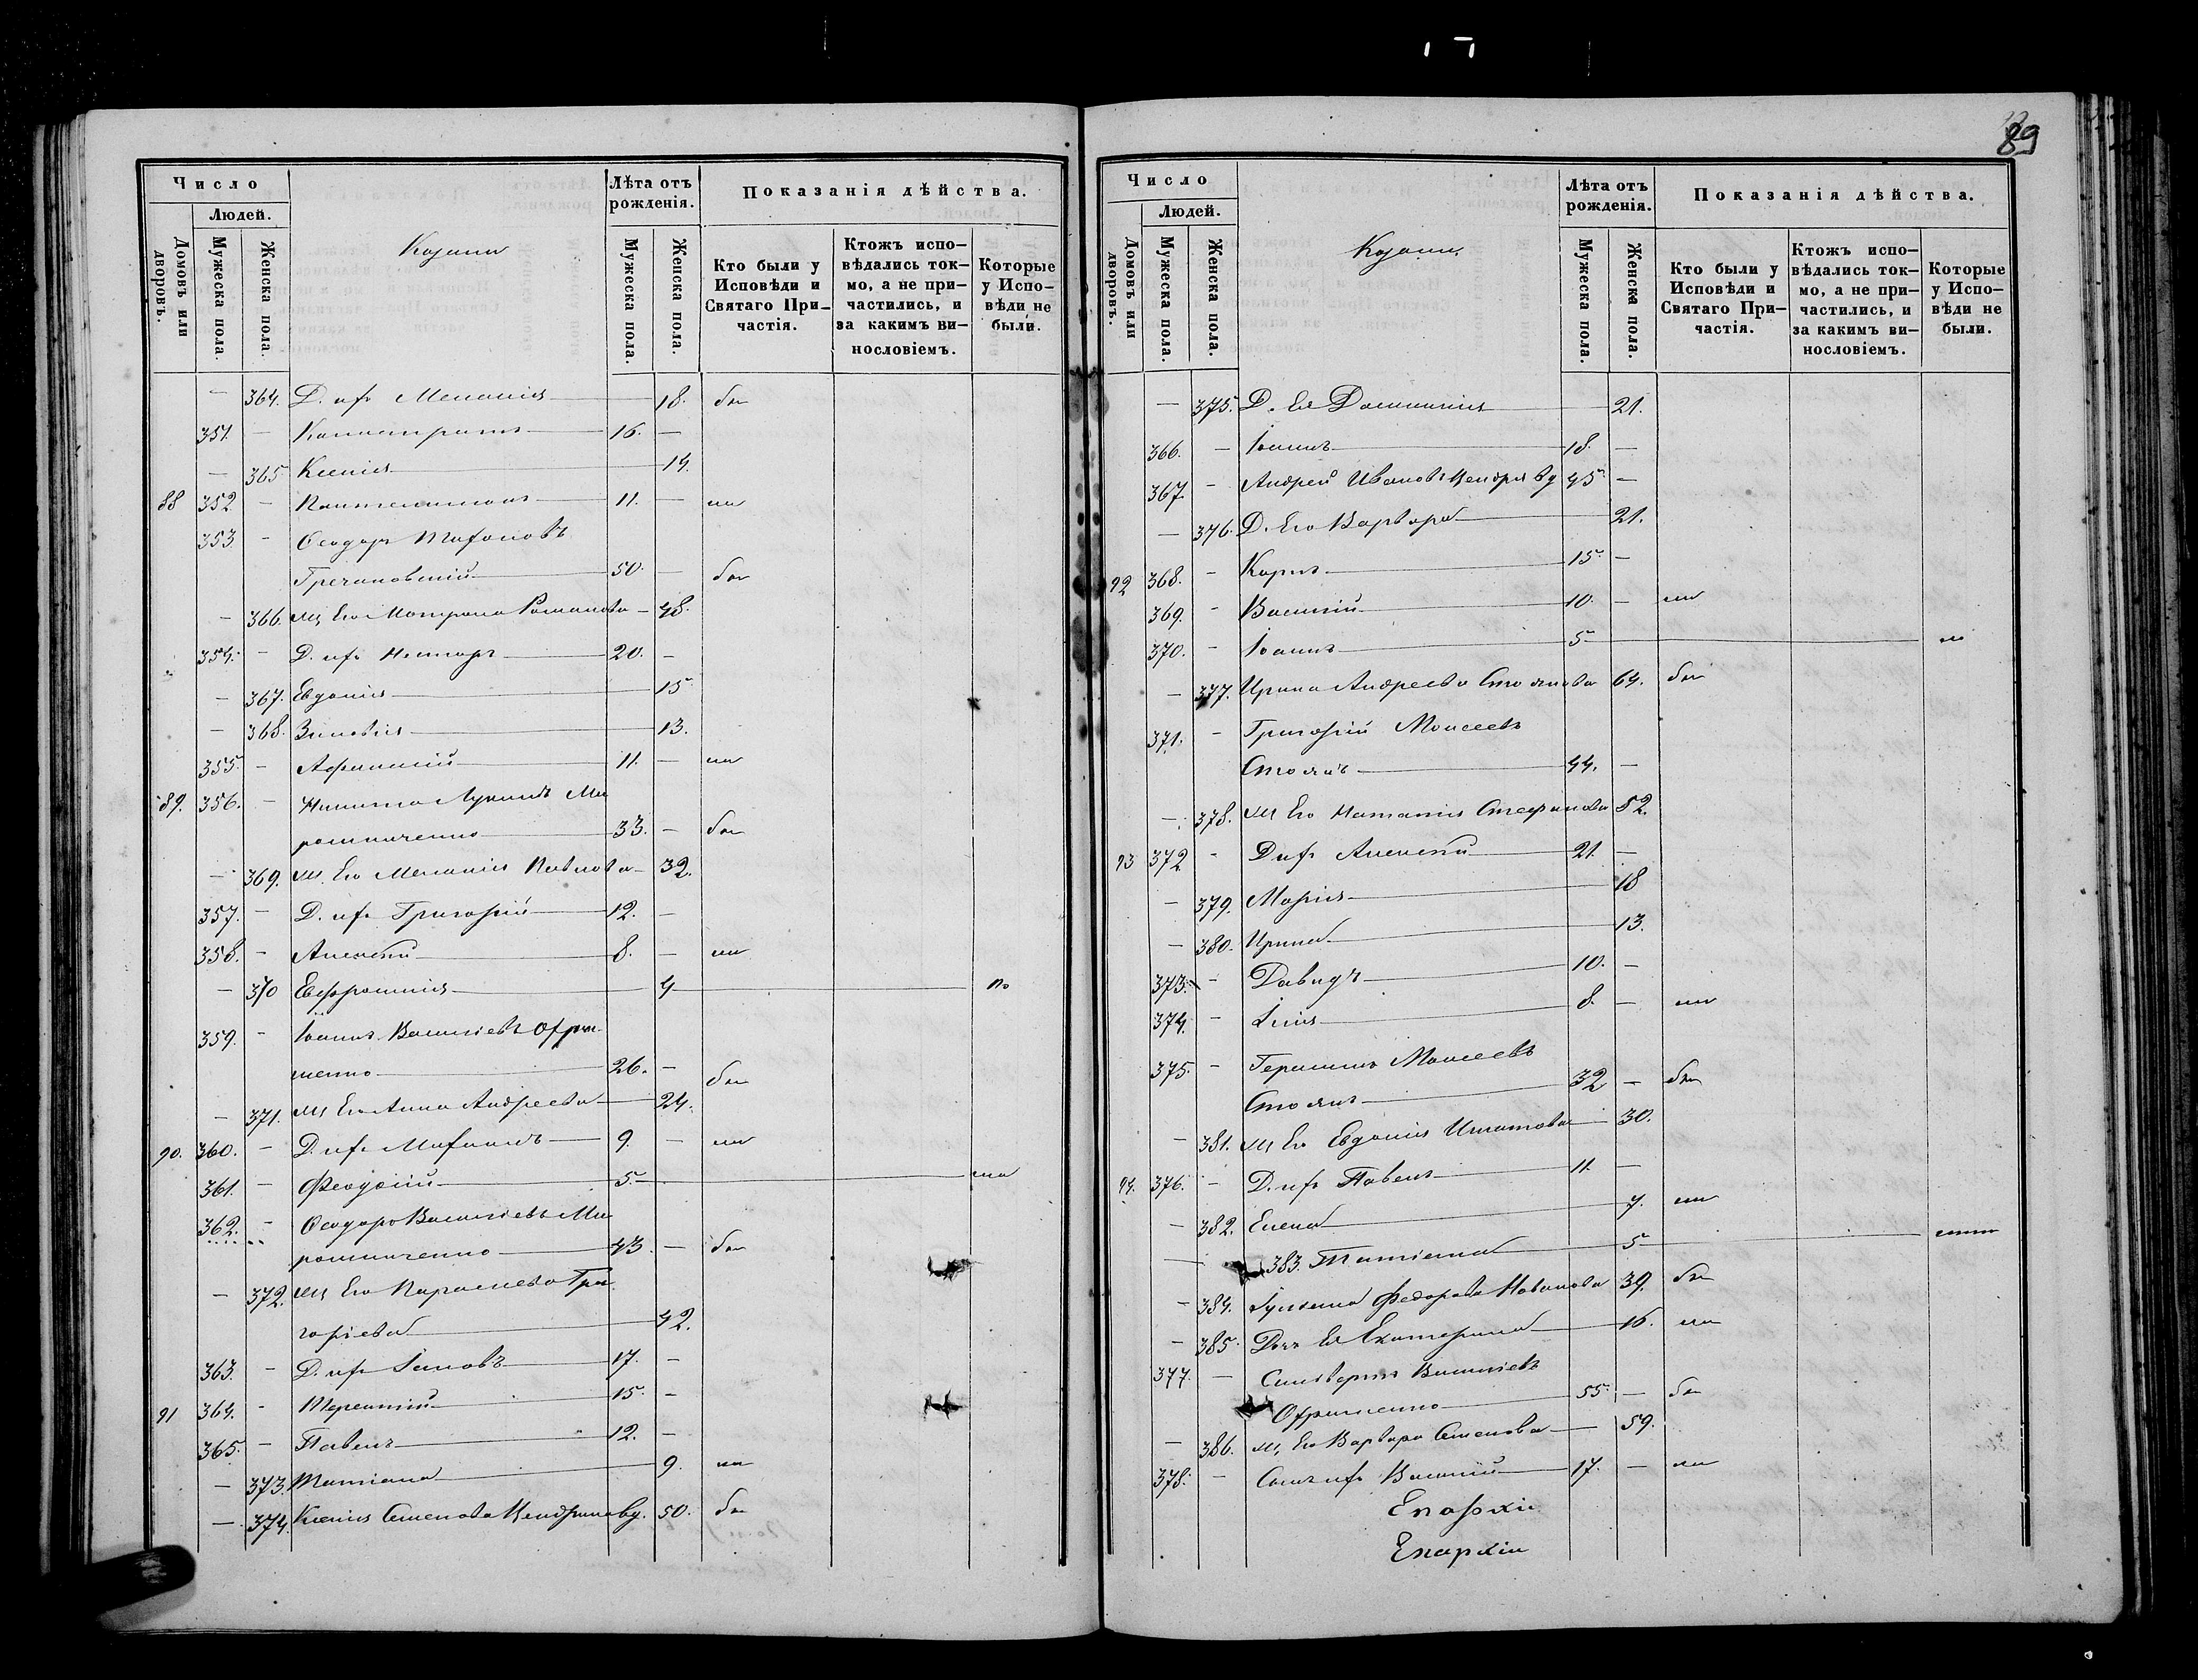 89
Число
Людей.
Домовъ или дворовъ.
Мужеска пола.
Женска пола.
Козаки
Лѣта отъ рожденія.
Мужеска пола.
Женска пола.
Показанія дѣйства.
Кто были у Исповѣди и Святаго При-частія.
Ктожъ испо-вѣдались ток-мо, а не при-частились, и за какимъ ви-нословіемъ.
Которые у Испо-вѣди не были.
— 364. Д. ихъ Меланія 18. бы
351. — Калистратъ 16. —
— 365 Ксенія 14.
88 352 — Пантелимонъ 11. — ли
353 — Ѳеодоръ
Гречановскій 50. — бы
— 366. Ж Его Матрона Романова 48.
354. — Д. ихъ Несторъ 20. —
— 367. Евдокія 15
— 368. Зиновія 13.
355 — Аѳанасій 11. — ли
89. 356. — Никита Лукинъ Ми
рошниченко 33. — бы
— 369. Ж. Его Меланія Павлова 32.
357. — Д. ихъ Григорій 12. —
358. — Алексѣй 8. — ли
— 370 Евфросинія 4
359. — Іоаннъ Васильевъ Ефри
менко 26. — бы
— 371. Ж Его Анна Андреева 24.
90. 360. — Д. ихъ 9. — ли
361. — Феодосій 5.
362. — Ѳеодоръ Васильевъ Ми
рошниченко 43. — бы
— 372. Ж Его Параскева Гри
горьева 42.
363. — Д. ихъ Іаковъ 17. —
91 364. — Терентій 15. —
365. — Павелъ 12. —
— 373. Татіана 9. ли
— 374. Ксенія Семенова вд. 50. бы
Число
Людей.
Домовъ или дворовъ.
Мужеска пола.
Женска пола.
Козаки
Лѣта отъ рожденія.
Мужеска пола.
Женска пола.
Показанія дѣйства.
Кто были у Исповѣди и Святаго При-частія.
Ктожъ испо-вѣдались ток-мо, а не при-частились, и за какимъ ви-нословіемъ.
Которые у Испо-вѣди не были.
— 375. Д. Ея Домникія 21.
366. — Іоаннъ 18. —
367 — Андрей Ивановъ вд 45 —
— 376. Д. Его Варвара 21.
92 368. — Карпъ 15 —
369. — Василій 10. — ли
370. — Іоаннъ 5
— 377. Ирина Андреева Стоянова 64. бы
371. — Григорій Моисеевъ
Стоянъ 44. —
— 378. Ж Его Наталія Стефанова 52.
93 372 — Д ихъ Алексѣй 21. —
— 379. Марія 18
— 380. Ирина 13.
373. — Давидъ 10. —
374. — Илія 8. — ли
375. — Герасимъ Моисеевъ
Стоянъ 32 — бы
— 381. Ж Его Евдокія Игнатова 30.
94. 376. — Д. ихъ Павелъ 11. —
— 382. Елена 7. ли
— 383. Татіана 5
— 384. Гликерія Федорова 39. бы
— 385. Дочь Ея Екатерина 16. ли
377. — Василіевъ
Ефрименко 55. — бы
— 386. Ж Его Варвара Семенова 59.
378. — Сынъ ихъ Василій 17. — ли
Епархіи
Епархіи